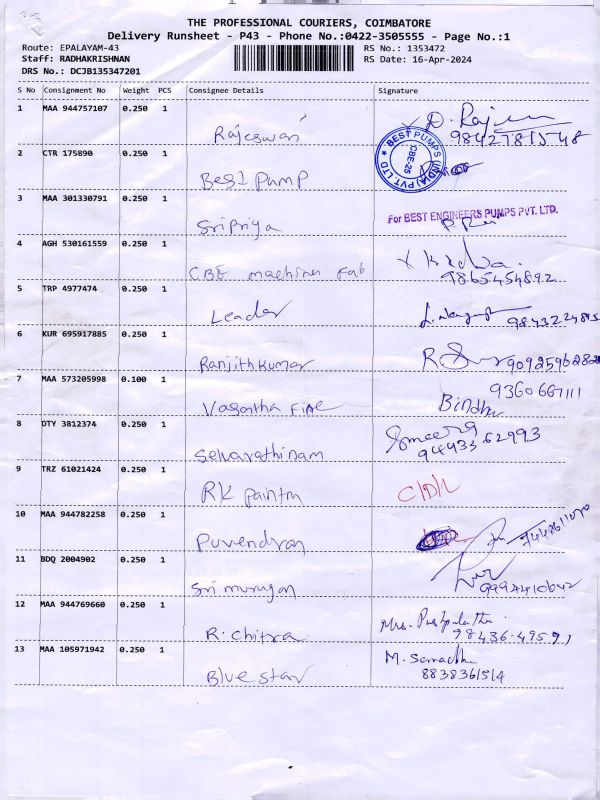 THE PROFESSIONAL COURIERS, COIMBATORE
Delivery Runsheet - P43 - Phone No.:0422-3505555 - Page No.:1
Route: EPALAYAM-43 RS No.: 1353472
Staff: RADHAKRISHNAN RS Date: 16-Apr-2024
DRS No.: DCJB135347201
S No Consignment No Weight PCS Consignee Details Signature
1 MAA 944757107 0.250 1
Rajeswari D. Raje
9842781548
2 CTR 175890 0.250 1
Best Pump BEST PUMPS (INDIA) PVT. LTD CBE-25
3 MAA 301330791 0.250 1
Sripriya For BEST ENGINEERS PUMPS PVT. LTD.
4 AGH 530161559 0.250 1
CBE machines Fab
9865454892
5 TRP 4977474 0.250 1
Leader
6 KUR 695917885 0.250 1
Ranjithkumar
7 MAA 573205998 0.100 1 9360667111
Vasantha Fine Bindhu
8 DTY 3812374 0.250 1
Selvarathinam 94433 62993
9 TRZ 61021424 0.250 1
RK Paintn
10 MAA 944782258 0.250 1
Puvendran
11 BDQ 2004902 0.250 1
Sri murugan 9994410642
12 MAA 944769660 0.250 1 Mrs. Pushpalatha
R. Chitra 98436-49591
13 MAA 105971942 0.250 1 M.
Blue star 8838361514